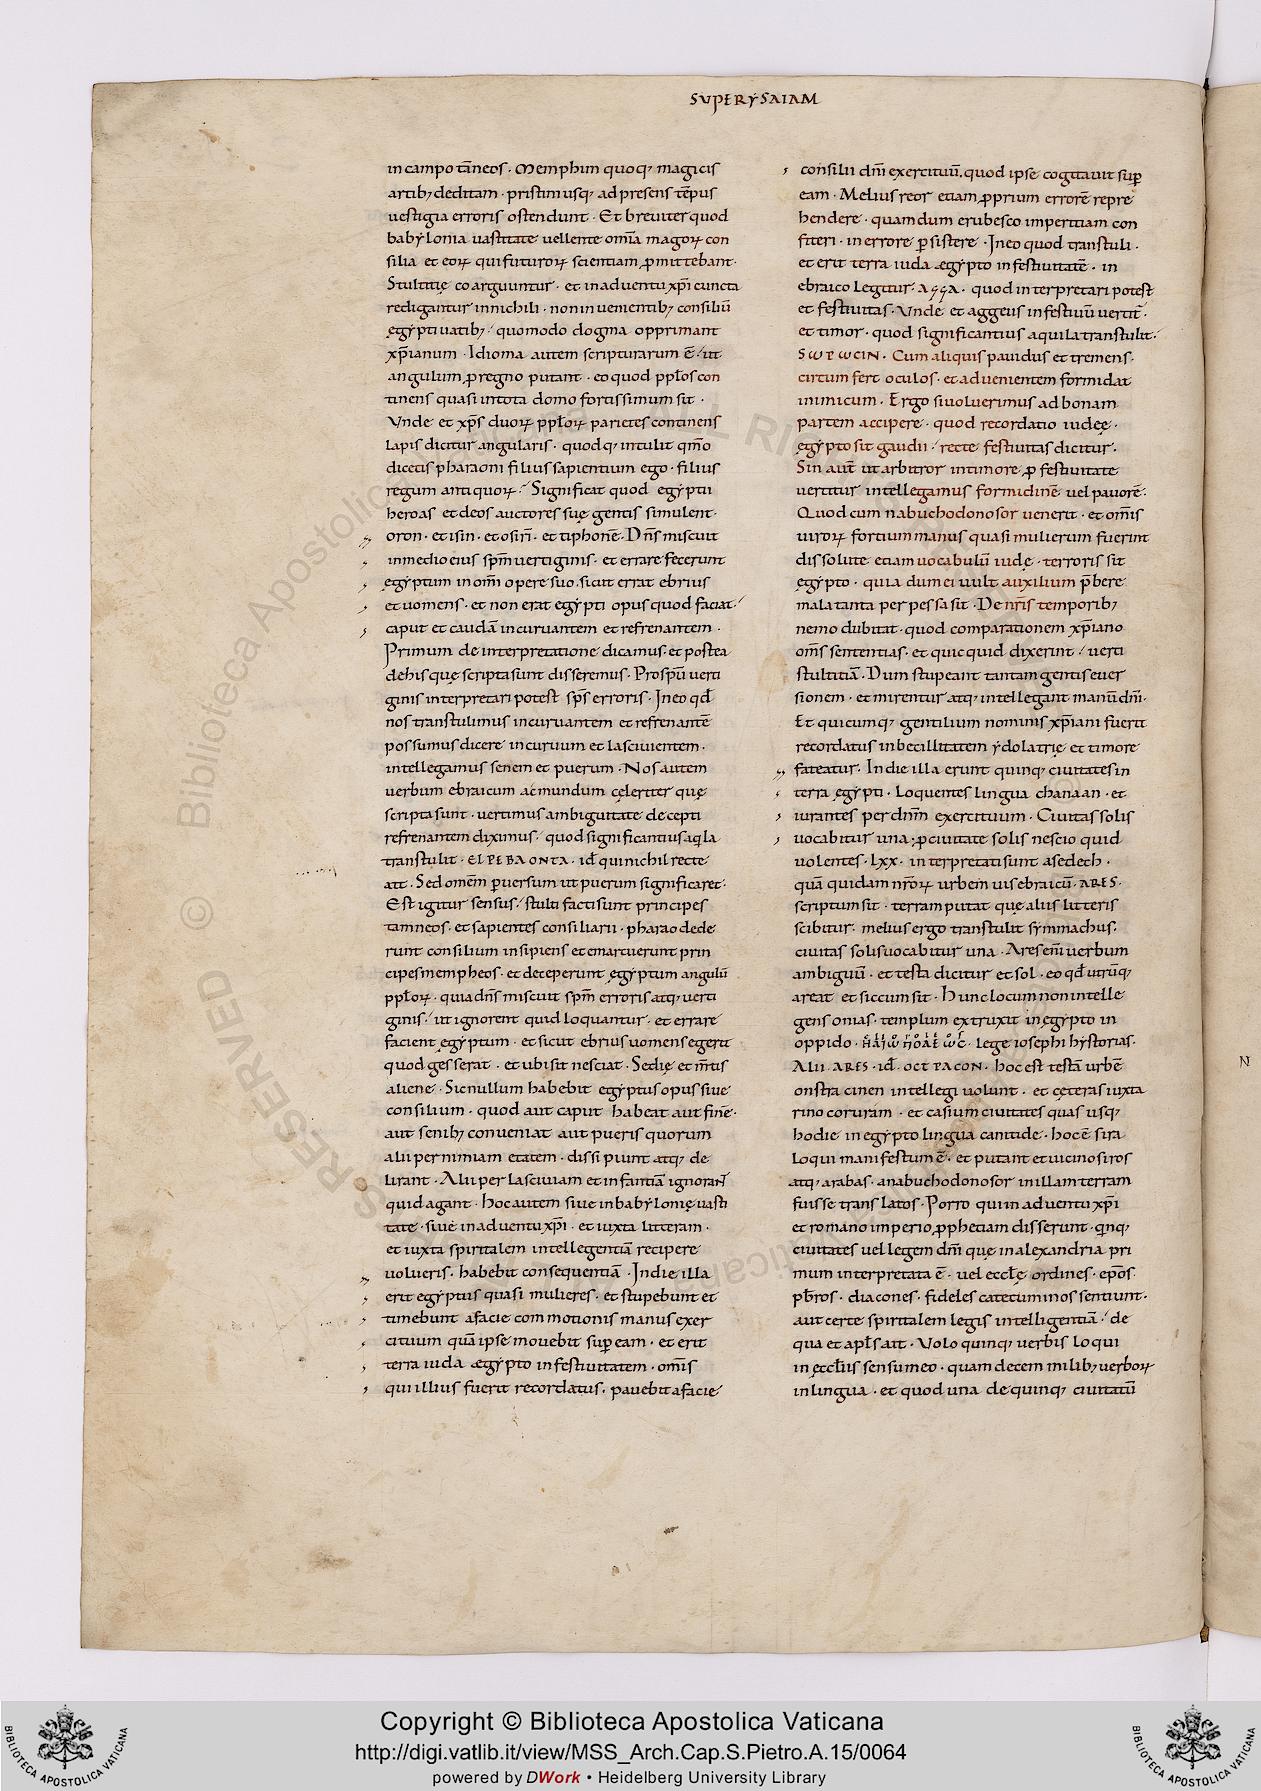 SUPER ẎSAIAM
in campo tãneos · Memphim quoq; magicis
artib; deditam · pristini usq; ad presens tẽpus
uestigia erroris ostendunt · Et breuiter quod
babẏlonia uastitate uellente om̃ia magoꝝ con
silia et eoꝝ qui futuroꝝ scientiam ꝓmittebant·
Stultitię coarguuntur · et in aduentu xp̃i cuncta
redigantur in nichili · non inuenientib; consiliũ
ęgẏpti uatib; · quomodo dogma opprimant
xp̃ianum · Idioma autem scripturarum ẽ · ut
angulum ꝓ regno putant · eo quod ppl̃os con
tinens quasi in tota domo fortissimum sit ·
Vnde et xp̃s duoꝝ ppl̃oꝝ parietes continens
lapis dicitur angularis · quodq; intulit qm̃o
dicetis pharaoni filius sapientium ego · filius
regum antiquoꝝ · Significat quod egẏptii
heroas et deos auctores suę gentis simulent·
oron · et isin · et osirĩ · et tiphonẽ · Dñs miscuit
in medio eius sp̃m uertiginis · et errare fecerunt
ęgẏptum in om̃i opere suo · sicut errat ebrius
et uomens · et non erat egẏpti opus quod faciat·
caput et caudã incuruantem et refrenantem ·
Primum de interpretatione dicamus · et postea
de his quę scripta sunt disseremus · Pro sp̃u uerti
ginis interpretari potest sp̃s erroris · In eo qđ
nos transtulimus incuruantem et refrenantẽ
possumus dicere incuruum et lasciuientem ·
intellegamus senem et puerum · Nos autem
uerbum ebraicum acmundum cęleriter quę
scripta sunt · uertimus ambiguitate decepti
refrenantem diximus · quod significantius aq̃la
transtulit · EL PEBAONTA · id̃ qui nichil recte
ait · Sed omẽm ꝑuersum ut puerum significaret·
Est igitur sensus · stulti facti sunt principes
tamneos · et sapientes consiliarii · pharao dede
runt consilium insipiens et emarcuerunt prin
cipes mempheos · et deceperunt ęgẏptum angulũ
ppl̃oꝝ · quia dñs miscuit sp̃m erroris atq; uerti
ginis · ut ignorent quid loquantur · et errare
facient ęgẏptum · et sicut ebrius uomens egerit
quod gesserat · et ubi sit nesciat · Sedię et m̃tis
alienę · Sic nullum habebit egẏptus opus siue
consilium · quod aut caput habeat aut finẽ·
aut senib; conueniat aut pueris quorum
alii per nimiam etatem · dissipiunt atq; de
lirant · Alii per lasciuiam et infantiã ignorañt
quid agant · hoc autem siue in babẏlonię uasti
tate · siue in aduentu xp̃i · et iuxta litteram ·
et iuxta spiritalem intellegentiã recipere
uolueris · habebit consequentiã · In die illa
erit egẏptus quasi mulieres · et stupebunt et
timebunt a facie commotionis manus exer
cituum quã ipse mouebit suꝑ eam · et erit
terra iuda ægẏpto in festiuitatem · om̃is
qui illius fuerit recordatus · pauebit a facie
consilii dñi exercituũ, quod ipse cogitauit suꝑ
eam · Melius reor etiam ꝓprium errorẽ repre
hendere · quam dum erubesco imperitiam con
fiteri · in errore ꝑsistere · In eo quod transtuli ·
et erit terra iuda ægẏpto in festiuitatẽ · in
ebraico legitur · AGGA · quod interpretari potest
et festiuitas · Vnde et aggeus in festiuũ uertit̃·
et timor · quod significantius aquila transtulit·
SWPWCIN · Cum aliquis pauidus et tremens·
circumfert oculos · et aduenientem formidat
inimicum · Ergo si uoluerimus ad bonam
partem accipere · quod recordatio iudęę ·
ęgẏpto sit gaudii · recte festiuitas dicitur ·
Sin aut̃ ut arbitror in timore ꝓ festiuitate
uertitur intellegamus formidinẽ uel pauorẽ·
Quod cum nabuchodonosor uenerit · et om̃is
uiroꝝ fortium manus quasi mulierum fuerint
dissolute etiam uocabulũ iudę · terroris sit
ęgẏpto · quia dum ei uult auxilium p̃bere
mala tanta perpessa sit · De nr̃is temporib;
nemo dubitat · quod comparationem xp̃iano
om̃s sententias · et quicquid dixerint · uerti
stultitiã · Dum stupeant tantam gentis euer
sionem · et mirentur atq; intellegant manũ dñi·
Et quicumq; gentilium nominis xp̃iani fuerit
recordatus inbecillitatem ẏdolatrię et timore
fateatur · In die illa erunt quinq; ciuitates in
terra ęgẏpti · loquentes lingua chanaan · et
iurantes per dñm exercituum · Ciuitas solis
uocabitur una · ꝓ ciuitate solis nescio quid
uolentes · lxx · interpretati sunt asedech ·
quã quidam nr̃oꝝ urbem uis ebraicũ · ARES ·
scriptum sit · terram putat quę aliis litteris
scibitur · melius ergo transtulit sẏmmachus·
ciuitas solis uocabitur una · Ares em̃ uerbum
ambiguũ · et testa dicitur et sol · eo qđ utrũq;
areat et siccum sit · Hunc locum non intelle
gens onias · templum extruxit in ęgẏpto in
oppido · lege iosephi hẏstorias·
Alii · ARES · id̃ · OCTPACON · hoc est testã urbẽ
onstracinen intellegi uolunt · et cęteras iuxta
rinocoruram · et casium ciuitates quas usq;
hodie in egẏpto lingua canitide · hoc ẽ sira
loqui manifestum ẽ · et putant et uicino siros
atq; arabas · a nabuchodonosor in illam terram
fuisse translatos · Porro qui in aduentu xp̃i
et romano imperio ꝓphetiam disserunt · q̃nq;
ciuitates uel legem dñi quę in alexandria pri
mum interpretata ẽ · uel eccl̃ę ordines · ep̃os·
pb̃ros · diacones · fideles catecuminos sentiunt·
aut certe spiritalem legis intelligentiã · de
qua et apl̃s ait · Volo quinq; uerbis loqui
in ęccl̃iis sensu meo · quam decem milib; uerboꝝ
in lingua · et quod una de quinq; ciuitatũ
N
Copyright © Biblioteca Apostolica Vaticana
http://digi.vatlib.it/view/MSS_Arch.Cap.S.Pietro.A.15/0064
powered by DWork • Heidelberg University Library